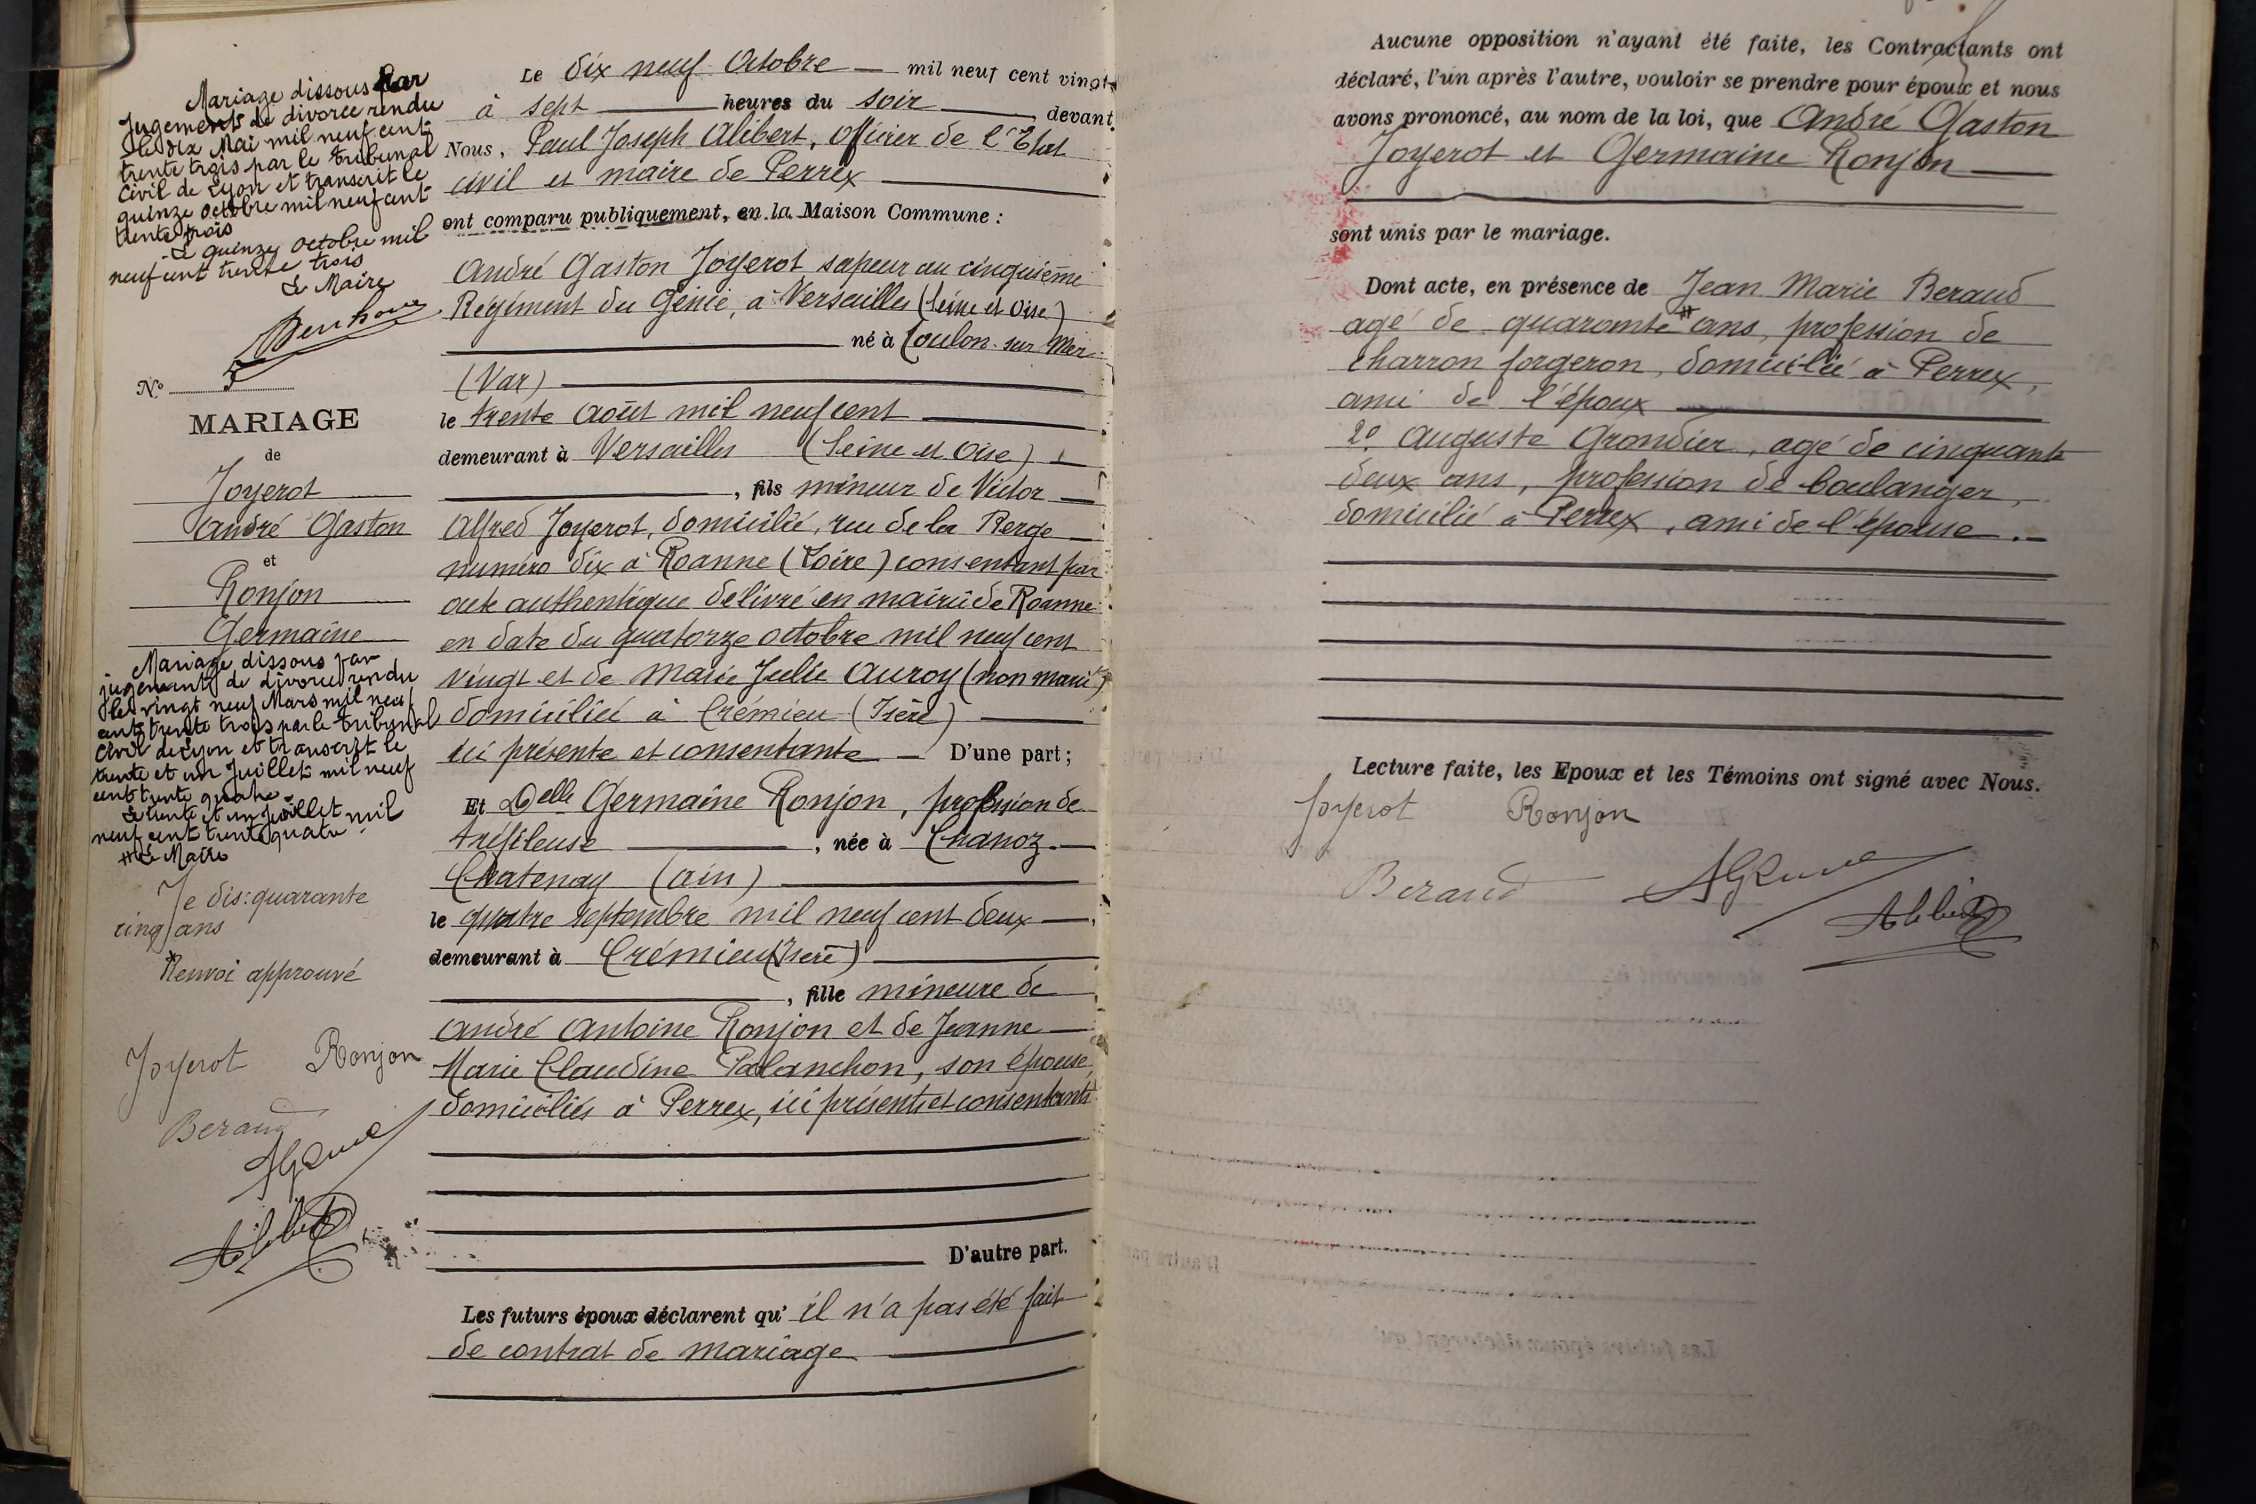 Mariage dissous par
jugement de divorce rendu
le dix Mai mil neuf cent
trente trois par le tribunal
civil de Lyon et transcrit le
quinze octobre mil neuf cent
trente trois
Le quinze octobre mil
neuf cent trente trois
Le Maire
No 5
MARIAGE
de
Joyerot
André Gaston
et
Ronjon
Germaine
Mariage dissous par
jugement de divorce rendu
le vingt neuf Mars mil neuf
cent trente trois par le tribunal
civil de Lyon et transcrit le
trente et un Juillet mil neuf
cent trente quatre.
Le trente et un juillet mil
neuf cent trente quatre
Le Maire
Je dis: quarante
cinq ans
Renvoi approuvé
Joyerot Ronjon
Beraud
Le dix neuf Octobre mil neuf cent vingt
à sept heures du soir devant
Nous, Paul Joseph Alibert, Officier de l'Etat
civil et maire de Perrex
ont comparu publiquement, en la Maison Commune :
André Gaston Joyerot sapeur au cinquième
Régiment du Génie, à Versailles (Seine et Oise)
né à Toulon-sur Mer
(Var)
le trente Août mil neuf cent
demeurant à Versailles (Seine et Oise)
, fils mineur de Victor
Alfred Joyerot, domicilié, rue de la Berge
numéro dix à Roanne (Loire) consentant par
acte authentique délivré en mairie de Roanne
en date du quatorze octobre mil neuf cent
vingt et de Marie Julie Auroy (non marié)
domiciliée à Crémieu (Isère)
ici présente et consentante D'une part ;
Et Delle Germaine Ronjon, profession de
tréfileuse , née à Chanoz-
Chatenay (Ain)
le quatre septembre mil neuf cent deux
demeurant à Crémieu (Isère)
, fille mineure de
André Antoine Ronjon et de Jeanne
Marie Claudine Palanchon, son épouse,
domiciliés à Perrex, ici présents et consentants
D'autre part.
Les futurs époux déclarent qu' il n'a pas été fait
de contrat de mariage
Aucune opposition n'ayant été faite, les Contractants ont
déclaré, l'un après l'autre, vouloir se prendre pour époux et nous
avons prononcé, au nom de la loi, que André Gaston
Joyerot et Germaine Ronjon
sont unis par le mariage.
Dont acte, en présence de Jean Marie Beraud
agé de quarante # ans, profession de
charron forgeron, domicilié à Perrex,
ami de l'époux
2o Auguste Grondier, agé de cinquante
deux ans, profession de boulanger,
domicilié à Perrex, ami de l'épouse.
Lecture faite, les Epoux et les Témoins ont signé avec Nous.
Joyerot Ronjon
Beraud